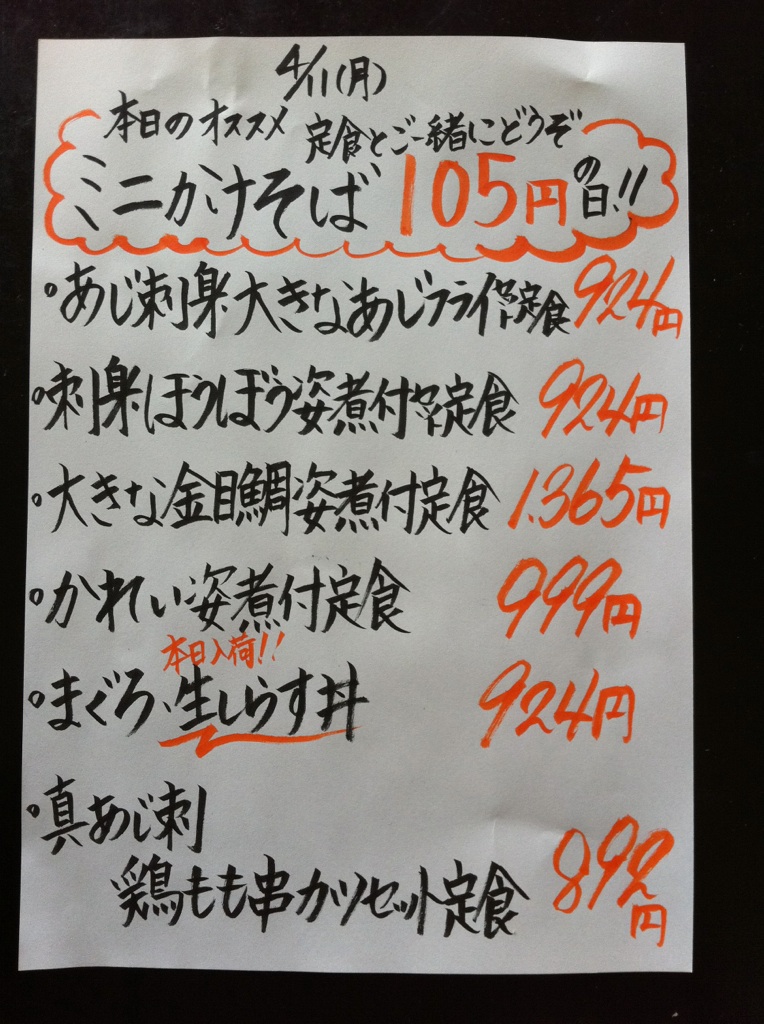 4/11(月)
本日のオススメ 定食とご一緒にどうぞ
ミニかけそば 105円の日!!
・あじ刺身大きなあじフライ付定食 924円
・刺身ほうぼう姿煮付セット定食 924円
・大きな金目鯛姿煮付定食 1.365円
・かれい姿煮付定食 999円
本日入荷!!
・まぐろ、生しらす丼 924円
・真あじ刺
鶏もも串カツセット定食 892円